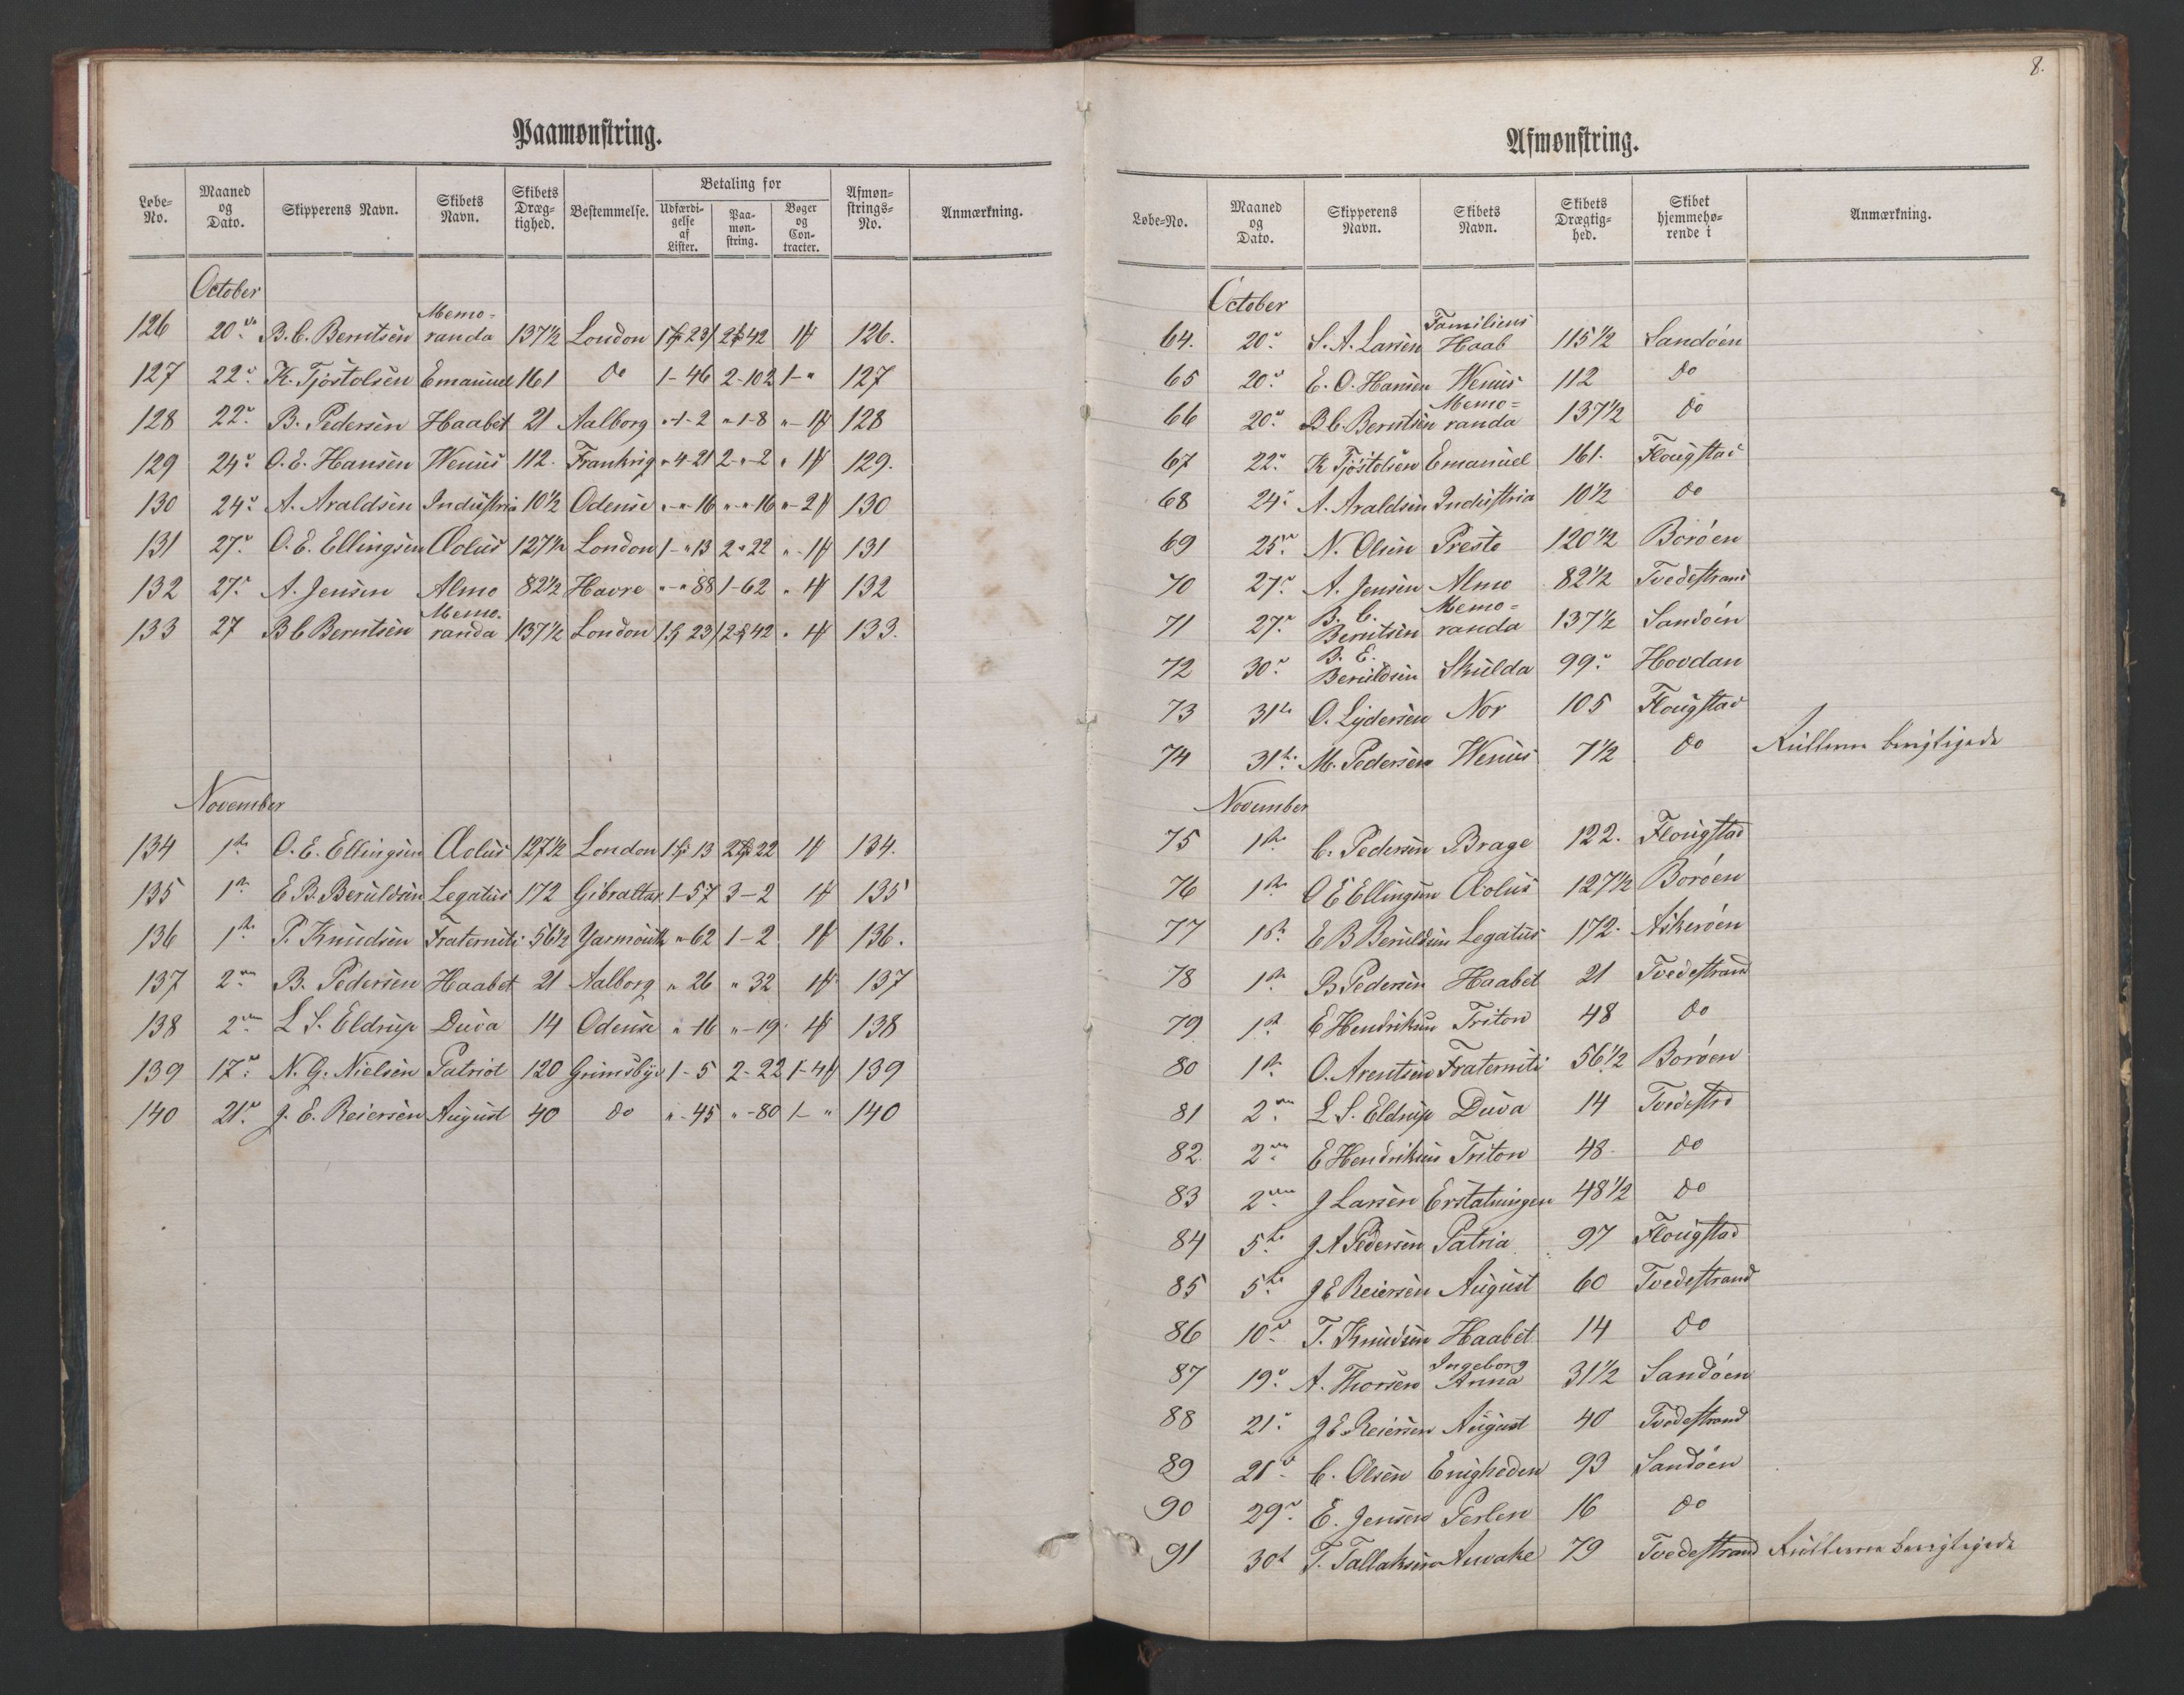 8.
Paamønstring.
Løbe-No. | Maaned og Dato. | Skipperens Navn. | Skibets Navn. | Skibets Dræg-tighed. | Bestemmelse. | Betaling for | Udfærdi-gelse af Lister. | Paa-møn-string. | Bøger og Con-tracter. | Afmøn-strings-No. | Anmærkning.
October
126 20de B. C. Berntsen Memo-randa 137½ London 126.
127 22de K. Tjøstolsen Emanuel 161 do 1-46 2-102 1-" 127
128 22de B. Pedersen Haabet 21 Aalborg "-1-2 "-1-8 128
129 24de O. E. Hansen Wenus 112. Frankrig "-4-21 2-"-2 129.
130 24de A. Araldsen Industria 10½ Odense "-"-16 "-"-16 130
131 27de O. E. Ellingsen Æolus 127½ London 1-"13 2"22 131
132 27de A. Jensen Alme 82½ Havre "-"88 1-62 132
133 27 B C Berntsen Memo-randa 137½ London 133.
November
134 1ste O. E. Ellingsen Æolus 127½ London 134.
135 1ste E B. Beruldsen Legatus 172 Gibraltar 1-57 3-2 135
136 1ste P. Knudsen Fraterniti 56½ Yarmouth "-62 1-2 136.
137 2den B. Pedersen Haabet 21 Aalborg " 26 " 32 137
138 2den L S. Eldrup Duva 14 Odense "-16 "-19 138
139 17de N. G. Nielsen Patriot 120 Grimsby 1-5 2-22 139
140 21de J. E. Reiersen August 40 do "-45 "-80 1-" 140
Afmønstring.
Løbe-No. | Maaned og Dato. | Skipperens Navn. | Skibets Navn. | Skibets Drægtig-hed. | Skibet hjemmehø-rende i | Anmærkning.
October
64. 20de S. A. Larsen Familiens Haab 115½ Sandøen
65 20de E. O. Hansen Wenus 112 do
66 20de B C. Berntsen Memo-randa 137½ do
67 22de K Tjøstolsen Emanuel 161. Flougstad
68 24de A. Araldsen Industria 10½ do
69 25de N. Olsen Presto 120½ Borøen
70 27de A. Jensen Alme 82½ Tvedestrand
71 27de B. C. Berntsen Memo-randa 137½ Sandøen
72 30de B. E. Beruldsen Skulda 99. Hovdan
73 31te O. Lydersen Nor 105 Flougstad
74 31te M. Pedersen Wenus 7½ do Rullerne berigtigede
November
75 1ste C. Pedersen Brage 122. Flougstad
76 1ste O E Ellingsen Æolus 127½ Borøen
77 1ste E B Beruldsen Legatus 172. Askerøen
78 1ste B Pedersen Haabet 21 Tvedestrand
79 1ste E Hendriksen Triton 48 do
80 1ste O. Arentsen Fraterniti 56½ Borøen
81 2den L S. Eldrup Duva 14 Tvedestrd
82. 2den E Hendriksen Triton 48 do
83 2den J Larsen Erstatningen 48½ do
84 5te J A Pedersen Patria 97 Flougstad
85 5te J E Reiersen August 60 Tvedestrand
86 10de T. Knudsen Haabet 14 do
87 19de A. Thorsen Ingeborg Anna 31½ Sandøen
88 21de J E Reiersen August 40 Tvedestrand
89 21de C. Olsen Enigheden 93 Sandøen
90 29de E. Jensen Perlen 16 do
91 30te T. Tallaksen Awake 79 Tvedestrand Rullerne berigtigede